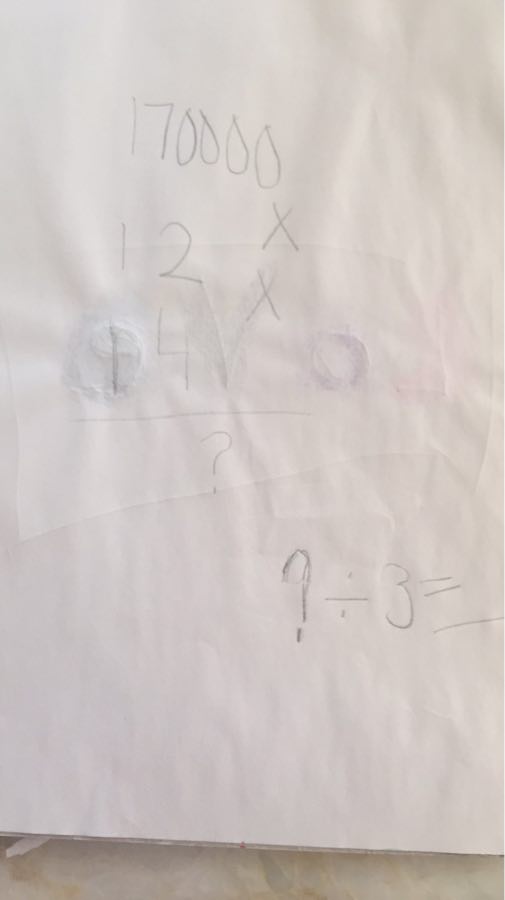 170000
12 X
14 X
?
? ÷ 3 = _